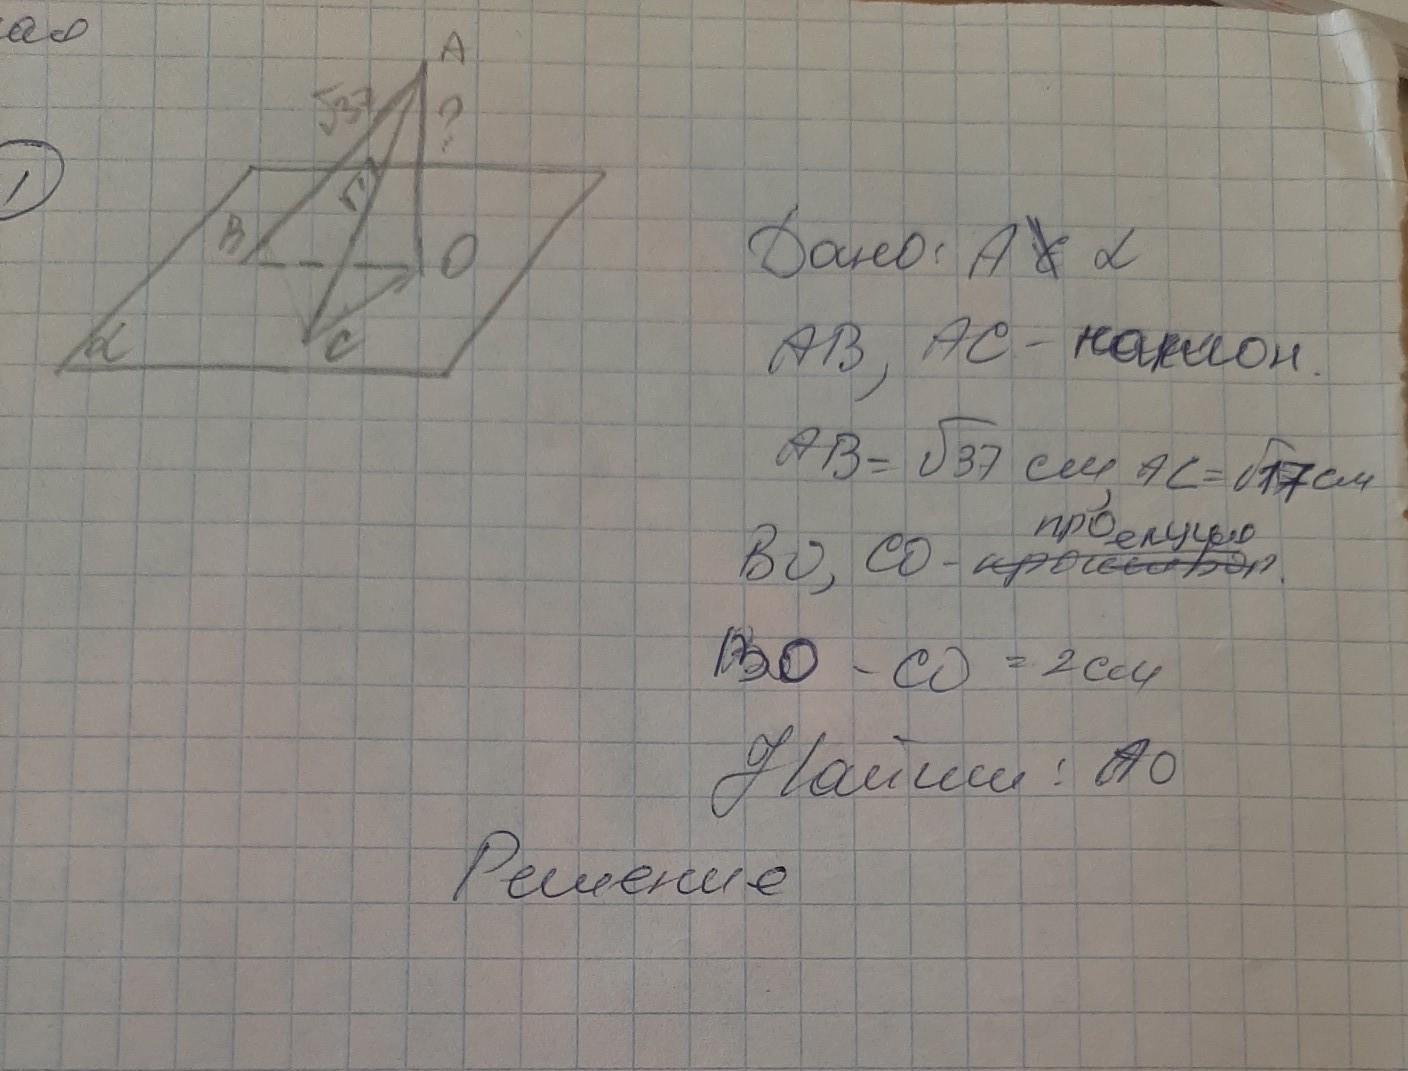 ао
1
A
√37
?
√17
B
O
C
α
Дано: A ∉ α
AB, AC - наклон.
AB = √37 см, AC = √17 см
BO, CO - проекцию
BO - CO = 2 см
Найти: AO
Решение